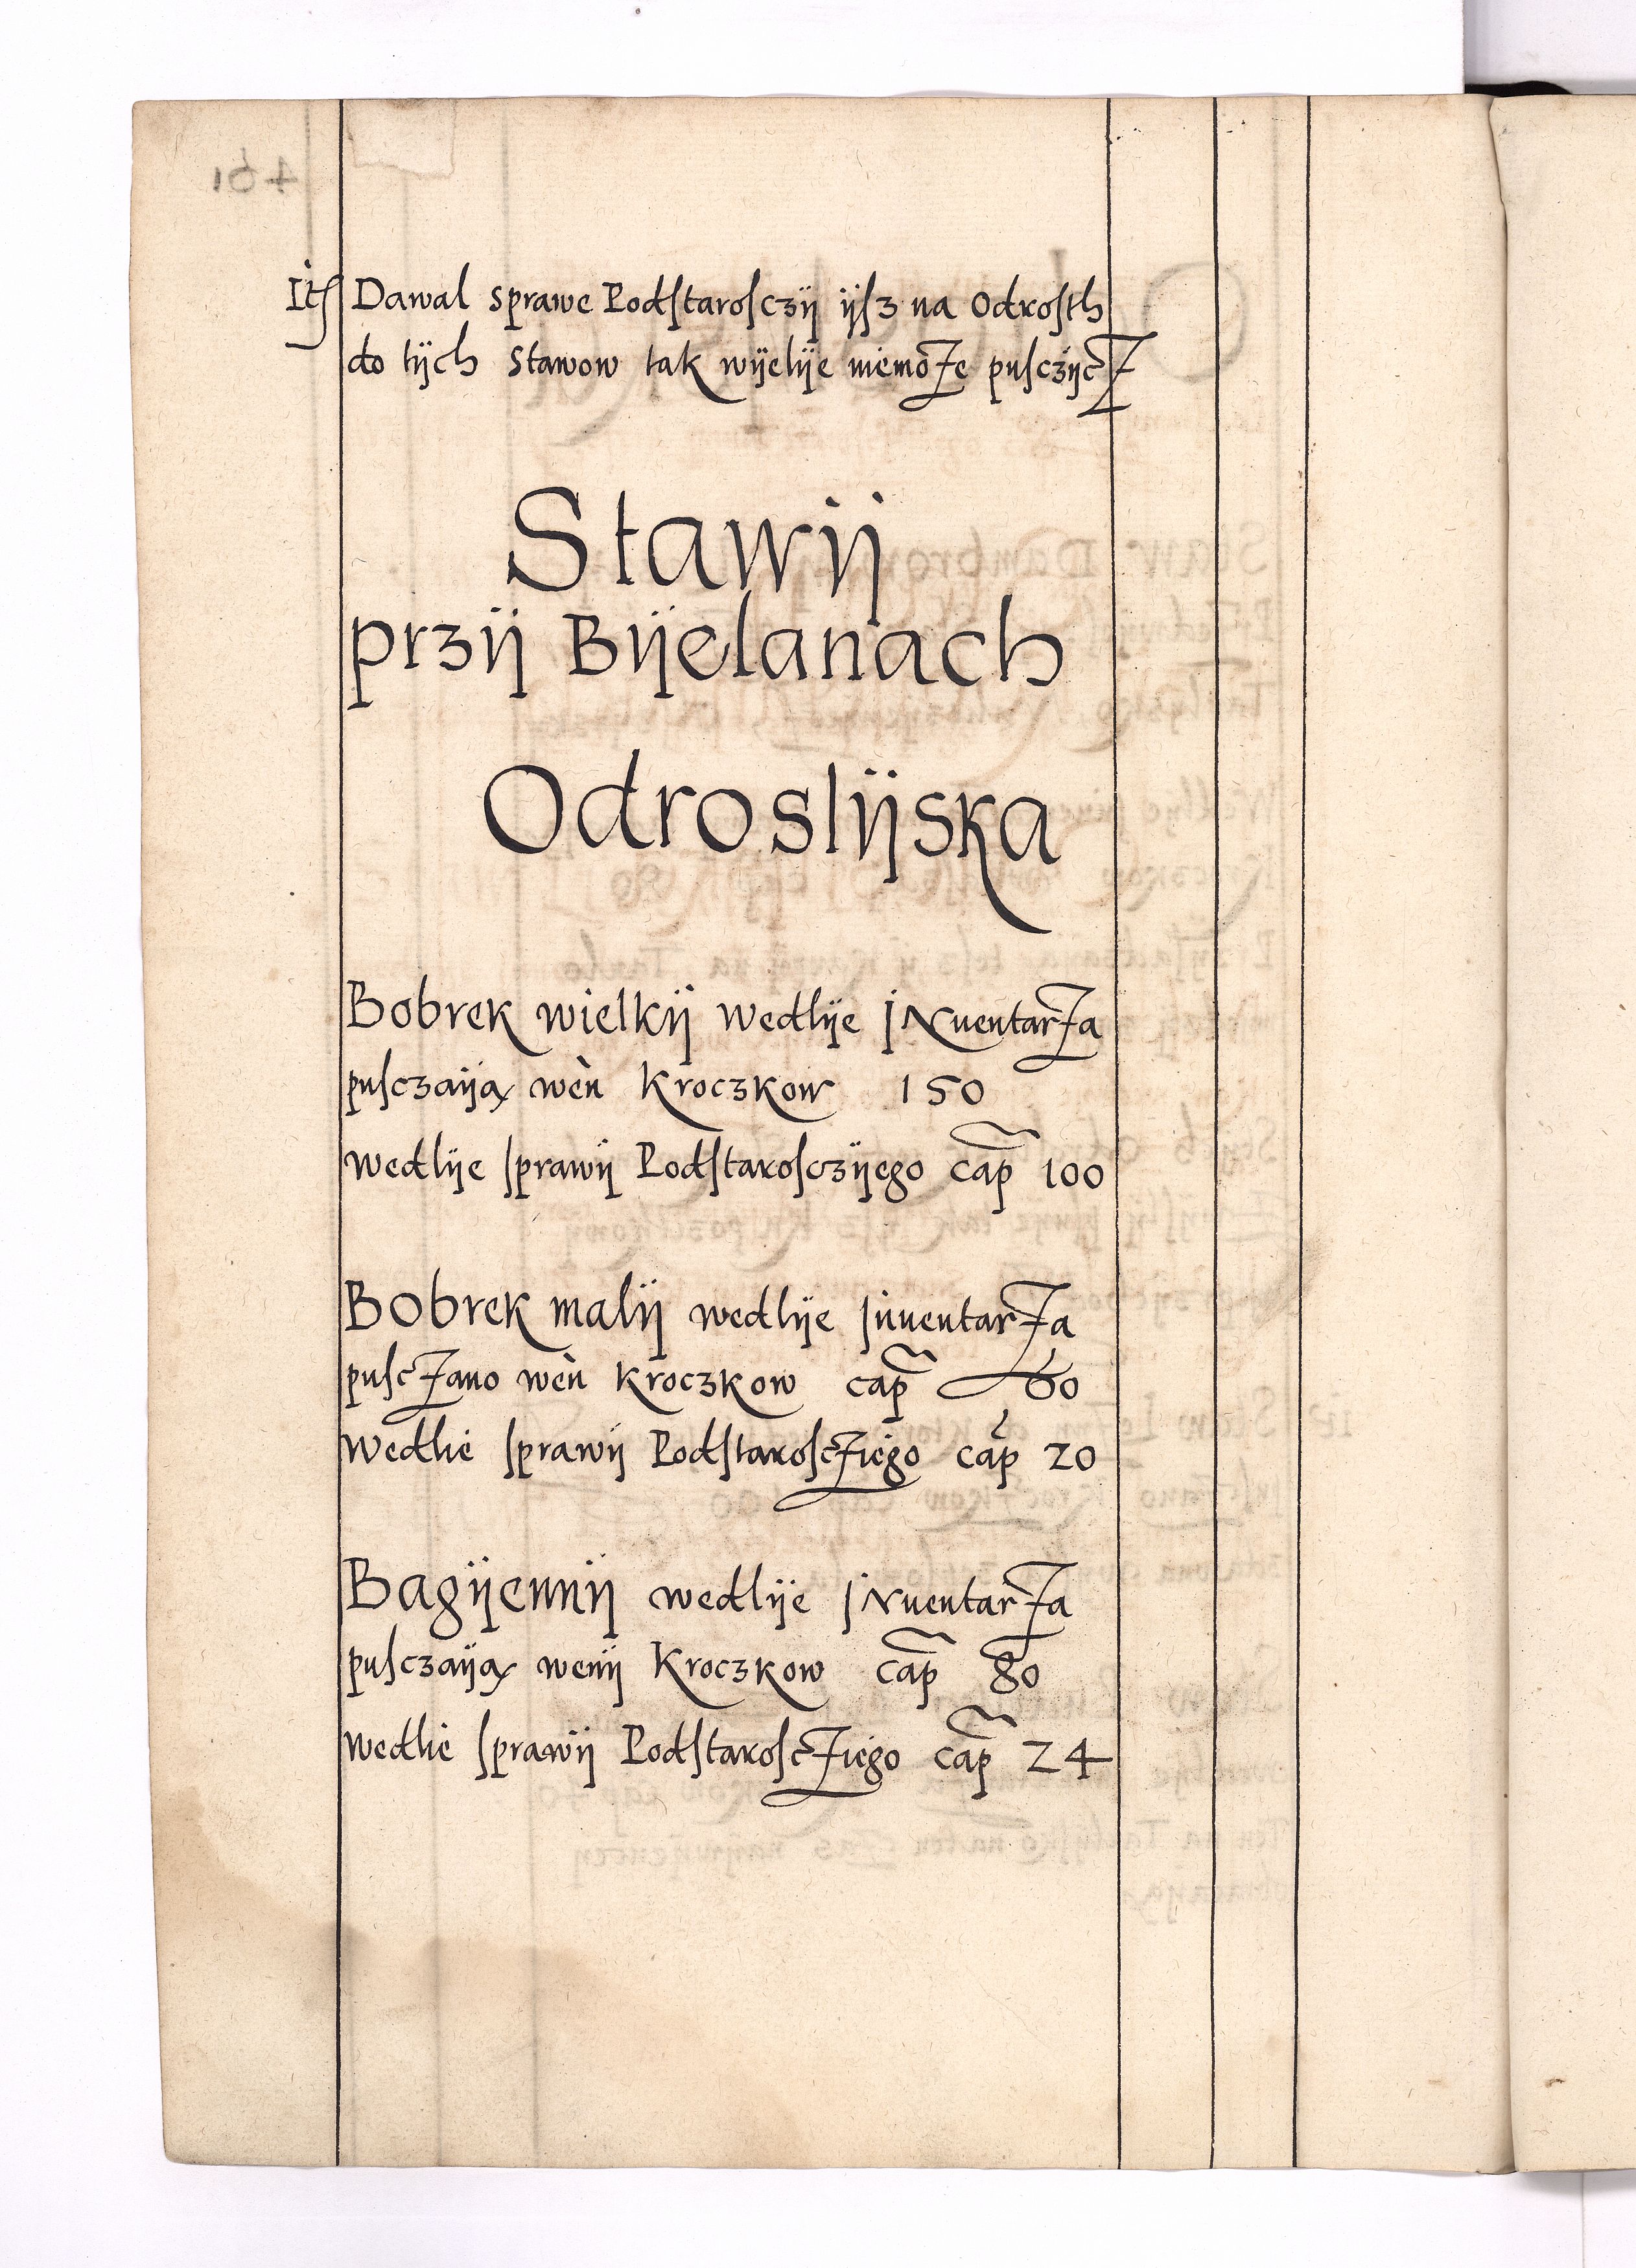 Itſ Dawal sprawe Podſtaroſczÿ ÿſz na Odroſth
do tÿch Stawow tak wÿelÿe niemoze puſczÿcz
Stawÿ
przÿ Bÿelanach
Odroslÿska
Bobrek wielkÿ wedlÿe jNuentarza
puſczaÿą wèn kroczkow 150
wedlÿe ſprawÿ Podſtaroſczÿego cap 100
Bobrek malÿ wedlÿe jnuentarza
puſczano wèn kroczkow cap 60
wedlie ſprawÿ Podſtaroſcziego cap 20
Bagÿennÿ wedlÿe jNuentarza
puſczaÿą wenÿ kroczkow cap 80
wedlie ſprawÿ Podſtaroſcziego cap 24